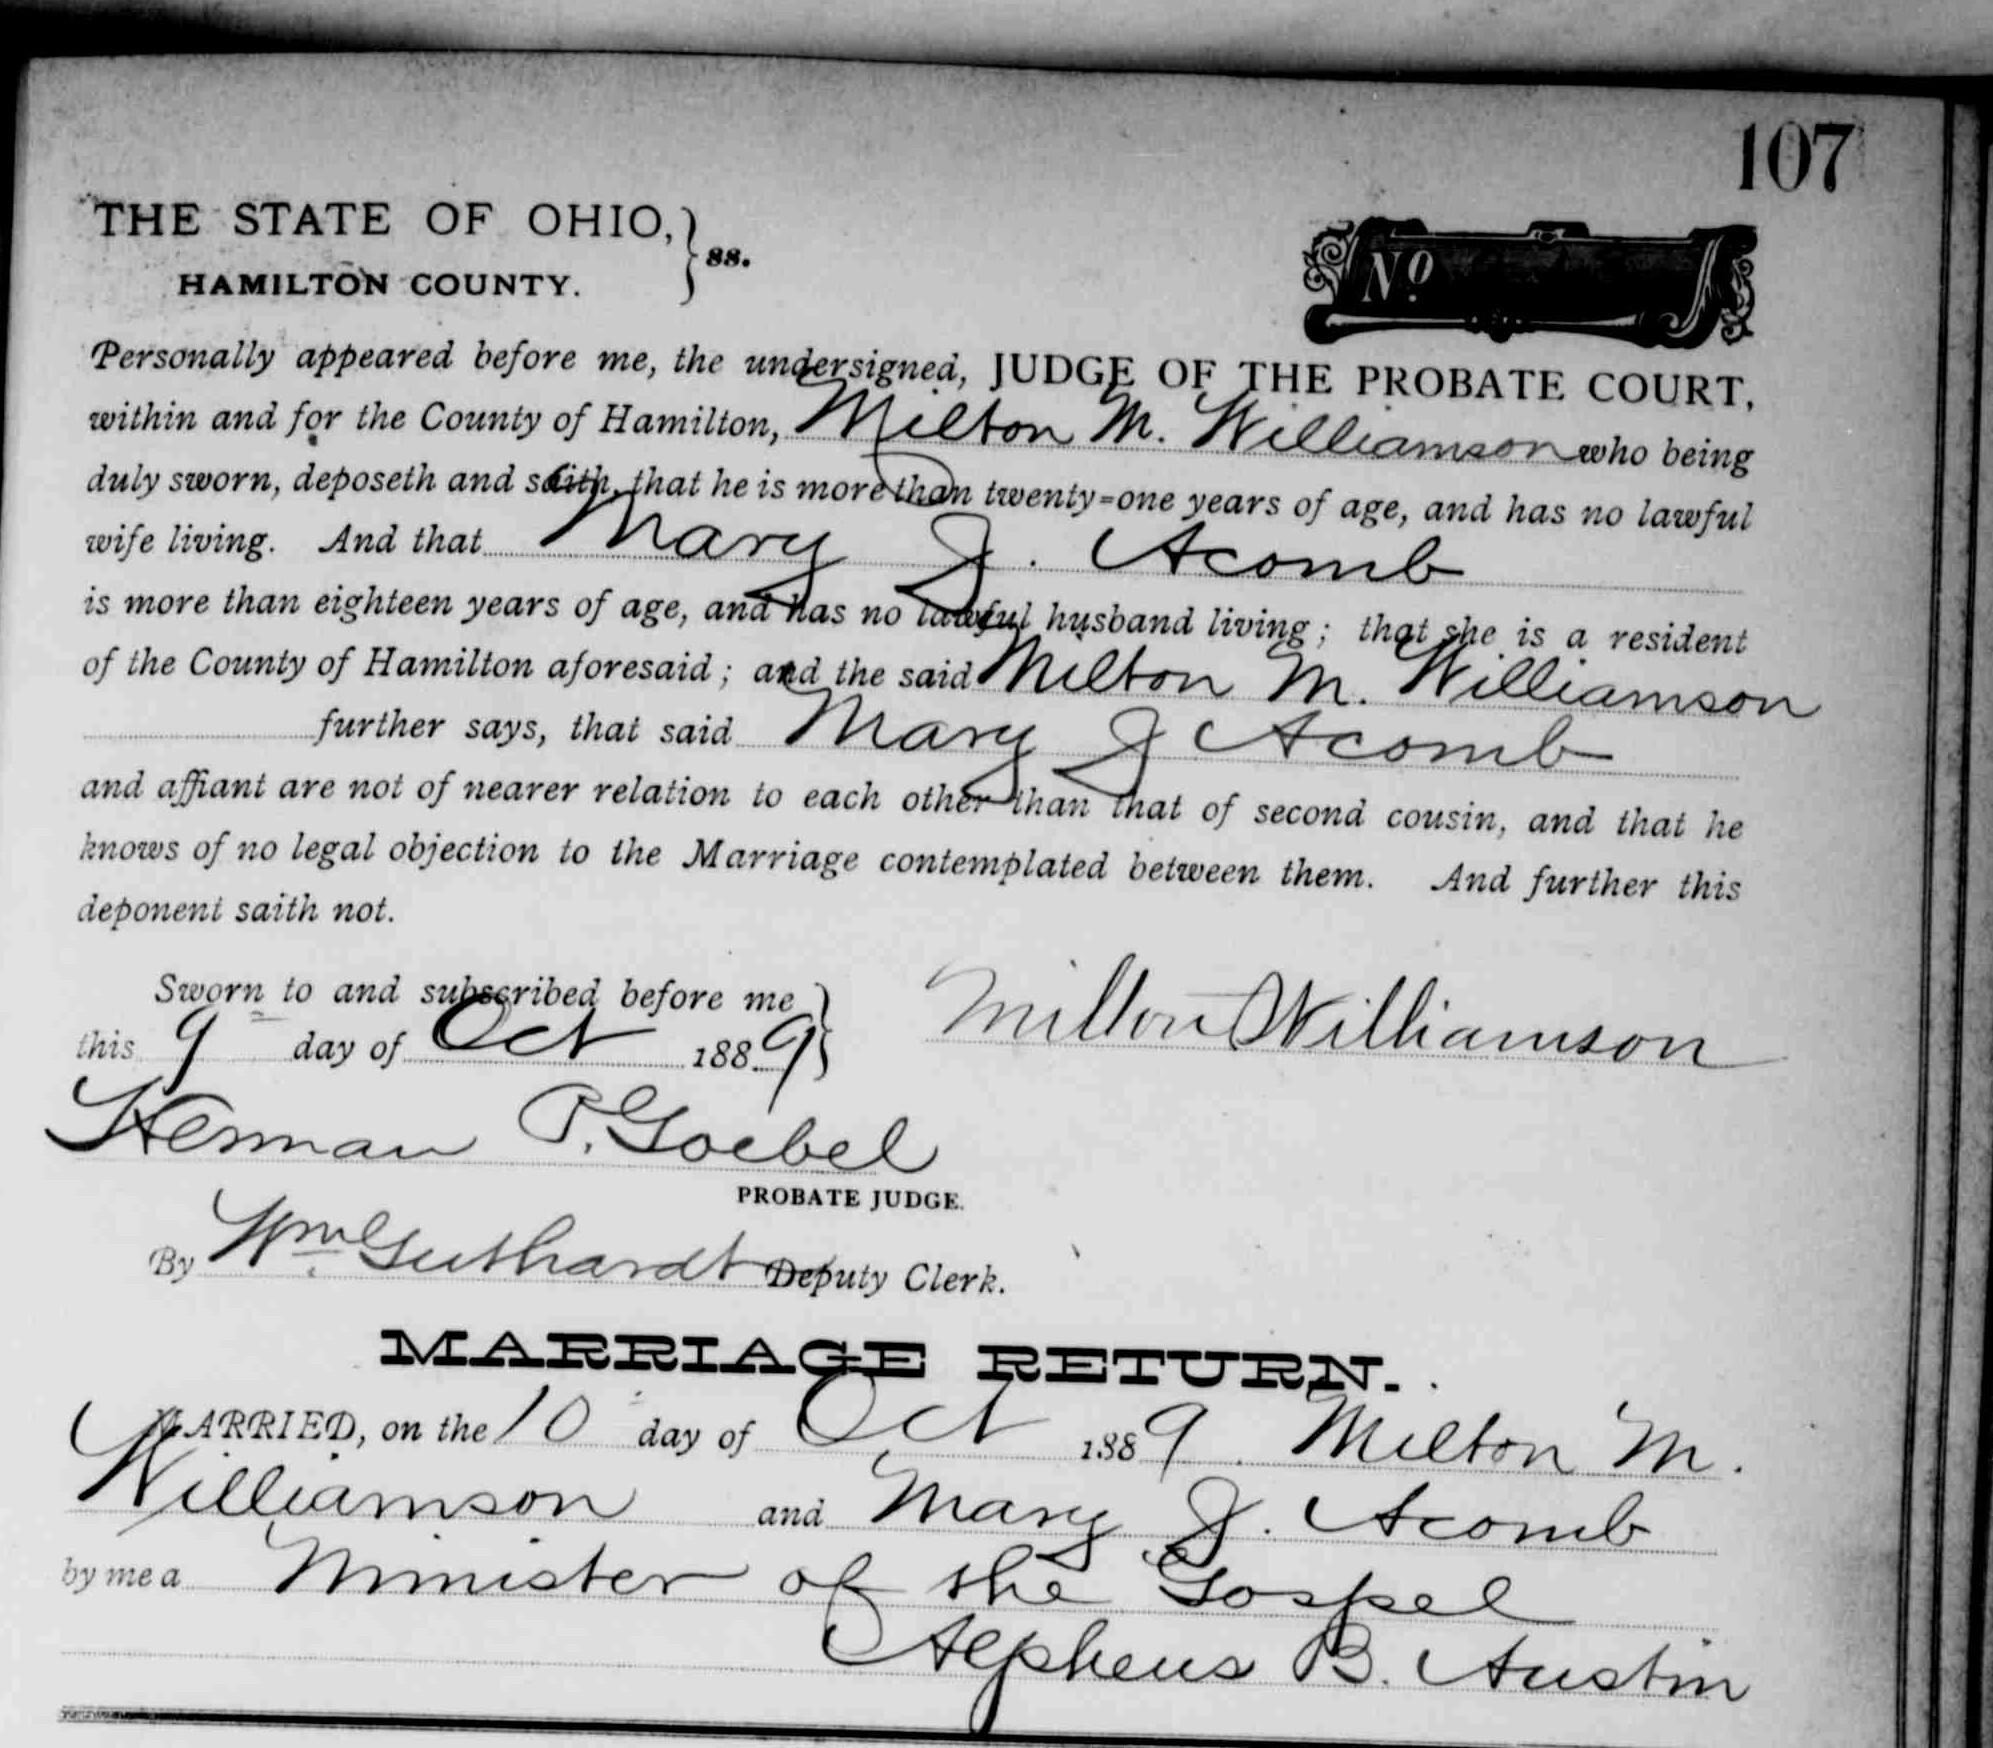 107
THE STATE OF OHIO, } ss.
HAMILTON COUNTY.
No.
Personally appeared before me, the undersigned, JUDGE OF THE PROBATE COURT,
within and for the County of Hamilton, Milton M. Williamson who being
duly sworn, deposeth and saith, that he is more than twenty=one years of age, and has no lawful
wife living. And that Mary J. Acomb
is more than eighteen years of age, and has no lawful husband living; that she is a resident
of the County of Hamilton aforesaid; and the said Milton M. Williamson
further says, that said Mary J Acomb
and affiant are not of nearer relation to each other than that of second cousin, and that he
knows of no legal objection to the Marriage contemplated between them. And further this
deponent saith not.
Sworn to and subscribed before me }
this 9 day of Oct 1889
Milton Williamson
Herman P. Goebel
PROBATE JUDGE.
By Wm Guthardt Deputy Clerk.
MARRIAGE RETURN.
MARRIED, on the 10 day of Oct 1889. Milton M.
Williamson and Mary J. Acomb
by me a Minister of the Gospel
Alpheus B. Austin